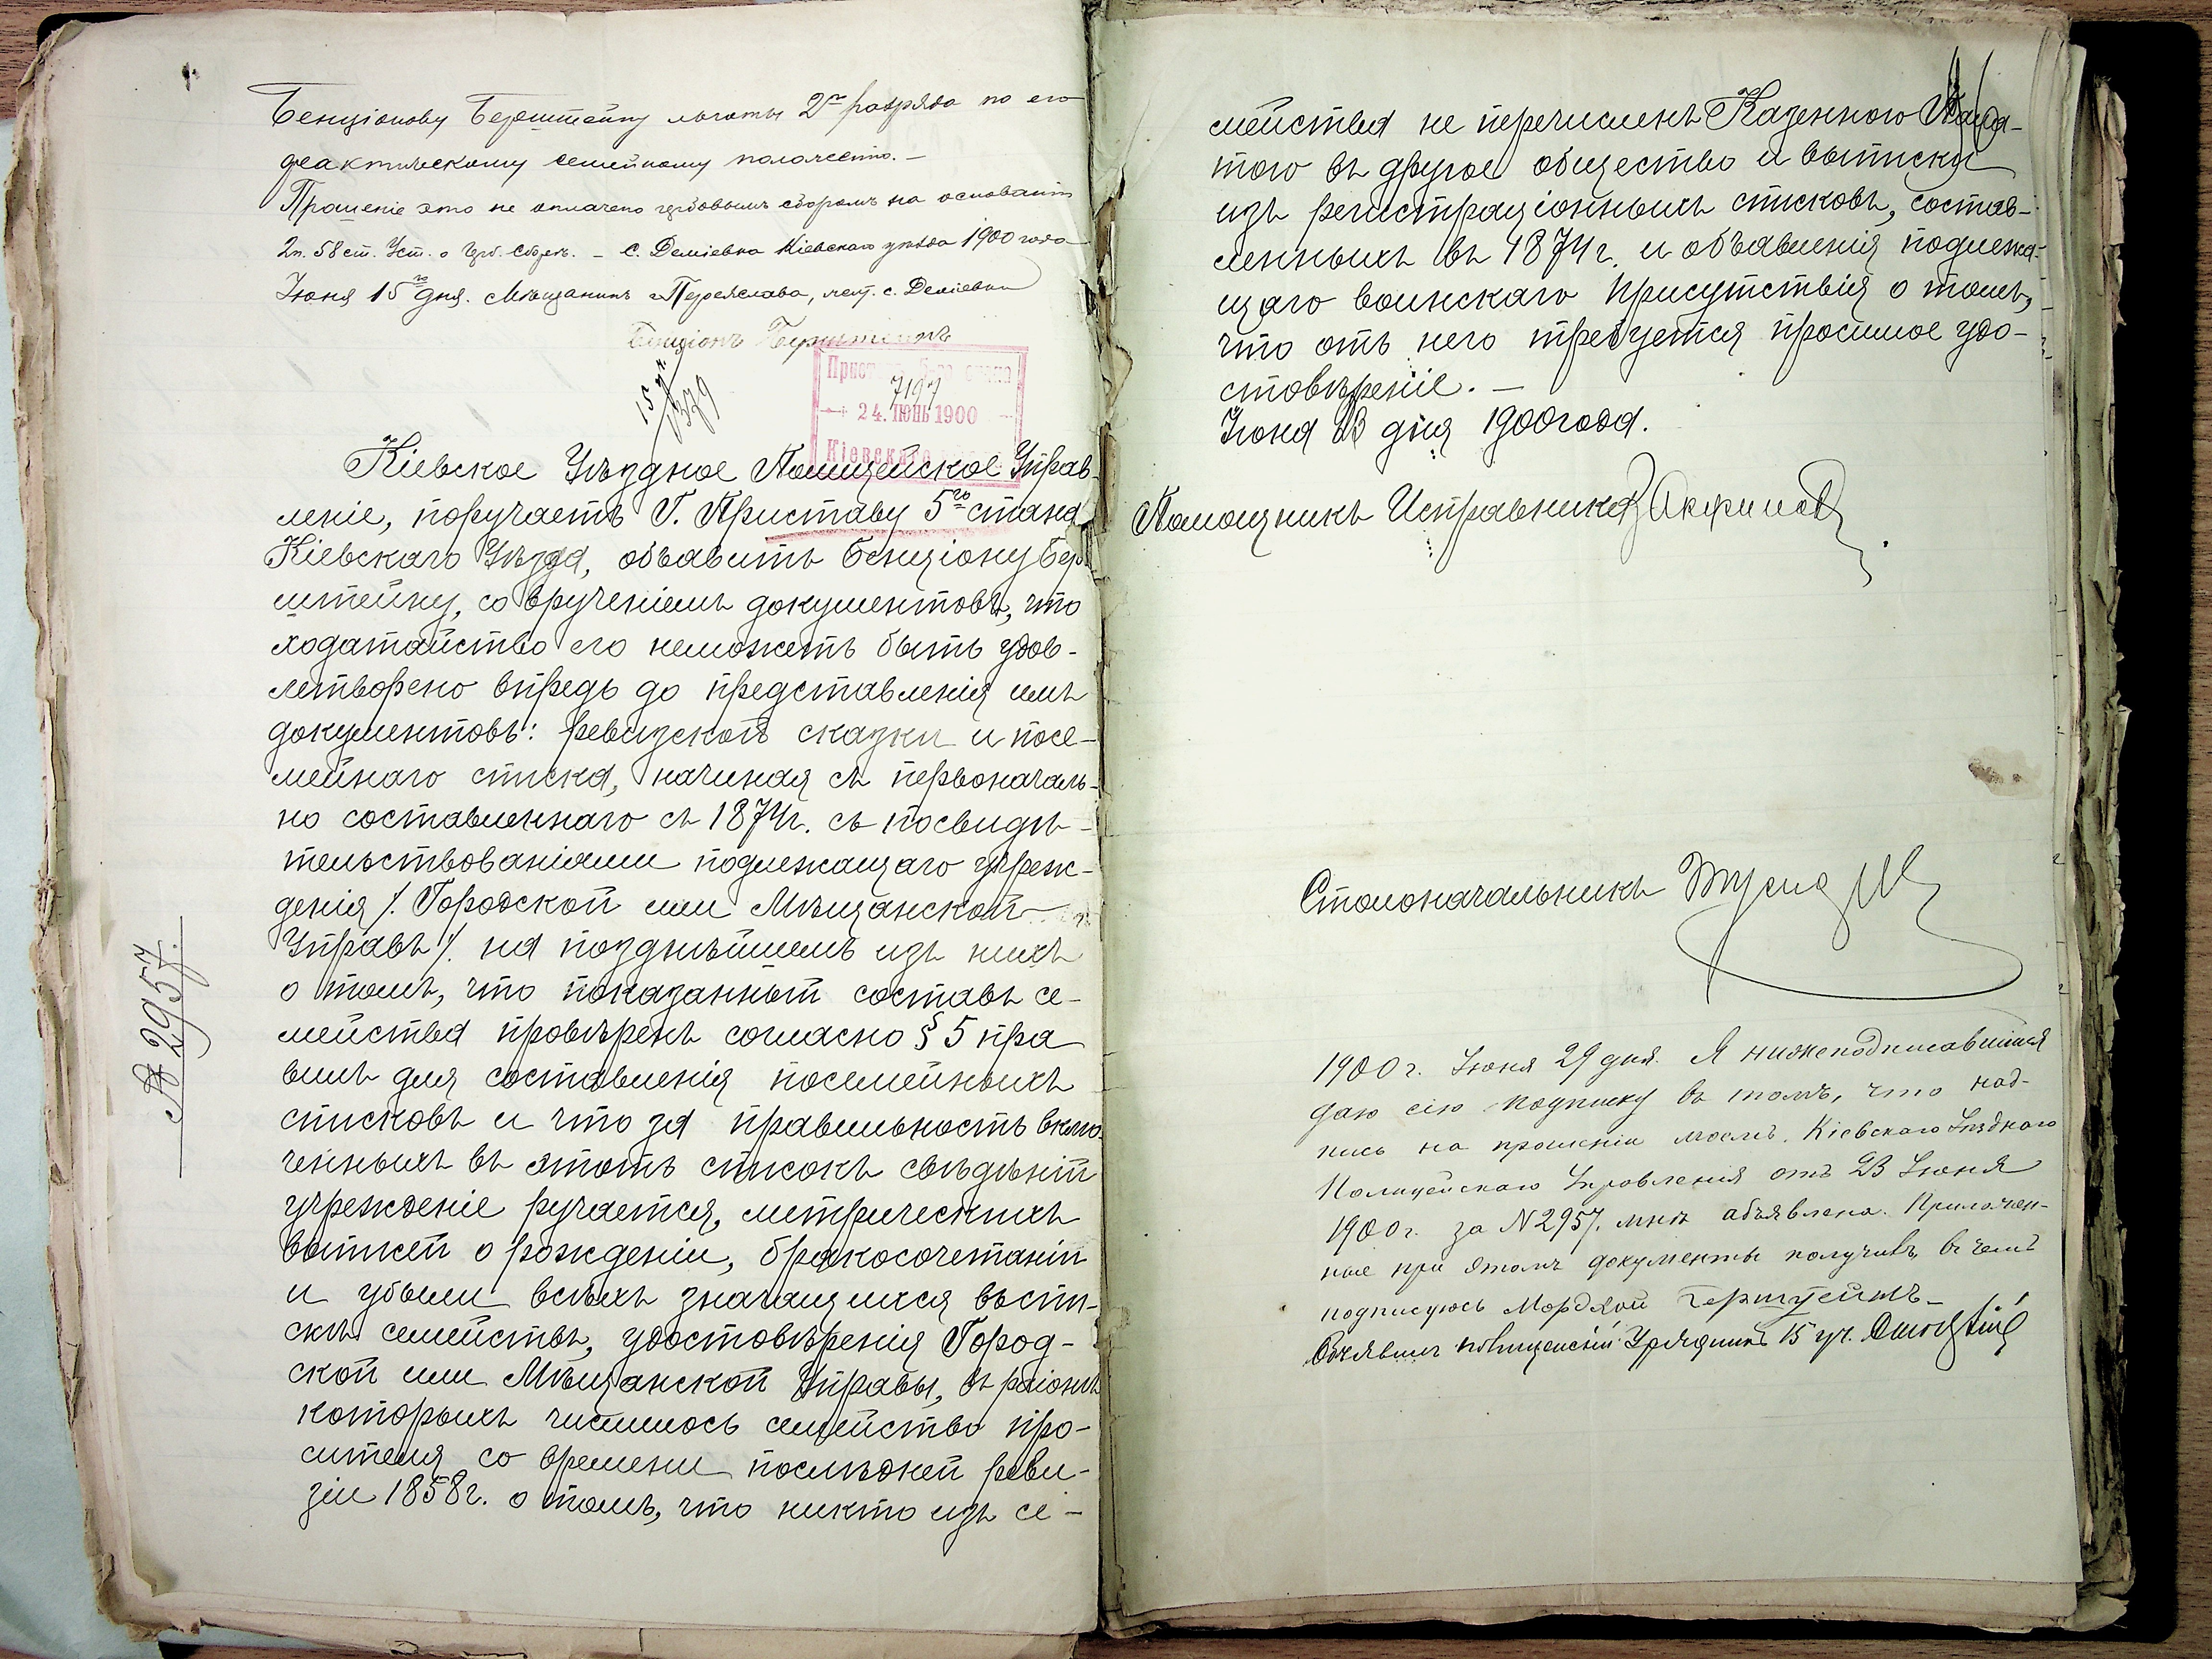 Бенціонову Берштейну льготы 2го разряда по его
фактическому семейному положенію. —
Прошеніе это не оплачено гербовымъ сборомъ на основаніи
2 п. 58 ст. Уст. о Герб. Сборѣ. – С. Деміевка Кіевскаго уѣзда 1900 года
Іюня 15го дня. Мѣщанинъ г. Переяслава, жит. с. Деміевки
Бенціонъ Берштейнъ
15 уч.
1379
7197
24. ІЮНЬ 1900
Кіевскаго
Кіевское Уѣздное Полицейское Управ-
леніе, поручаетъ Г. Приставу 5го стана
Кіевскаго Уѣзда, объявить Бенціону Бер-
штейну, со врученіемъ документовъ, что
ходатайство его неможетъ быть удов-
летворено впредь до представленія имъ
документовъ: ревизской сказки и посе-
мейнаго списка, начиная съ первоначаль-
но составленнаго съ 1874 г. съ посвидѣ-
тельствованіями подлежащаго учреж-
денія /. Городской или Мѣщанской
Управъ /. на позднѣйшемъ изъ нихъ
о томъ, что показанный составъ се-
мейства провѣренъ согласно § 5 пра
вилъ для составленія посемейныхъ
списковъ и что за правильность вклю-
ченныхъ въ этотъ списокъ свѣдѣній
учрежденіе ручается, метрическихъ
выписей о рожденіи, бракосочетаніи
и убыли всѣхъ значащихся въ спи-
скѣ семействъ, удостовѣренія Город-
ской или Мѣщанской Управы, въ раіонѣ
которыхъ числилось семейство про-
сителя со времени послѣдней реви-
зіи 1858 г. о томъ, что никто изъ се-
№ 2957.
мейства не перечисленъ Казенною Пала-
тою въ другое общество и выписки
изъ регистраціонныхъ списковъ, состав-
ленныхъ въ 1874 г. и объявленія подлежа-
щаго воинскаго присутствія о томъ,
что отъ него требуется просимое удо-
стовѣреніе. —
Іюня 23 дня 1900 года.
Помощникъ Исправника
Столоначальникъ
1900 г. Іюня 29 дня. Я нижеподписавшійся
даю сію подписку въ томъ, что над-
пись на прошеніи моемъ Кіевскаго Уѣзднаго
Полицейскаго Управленія отъ 23 Іюня
1900 г. за N 2957. мнѣ объявлена. Приложен-
ные при этомъ документы получивъ, въ чемъ
подписуюсь Мордхой Берштейнъ
Объявилъ полицейскій Урядникъ 15 уч.